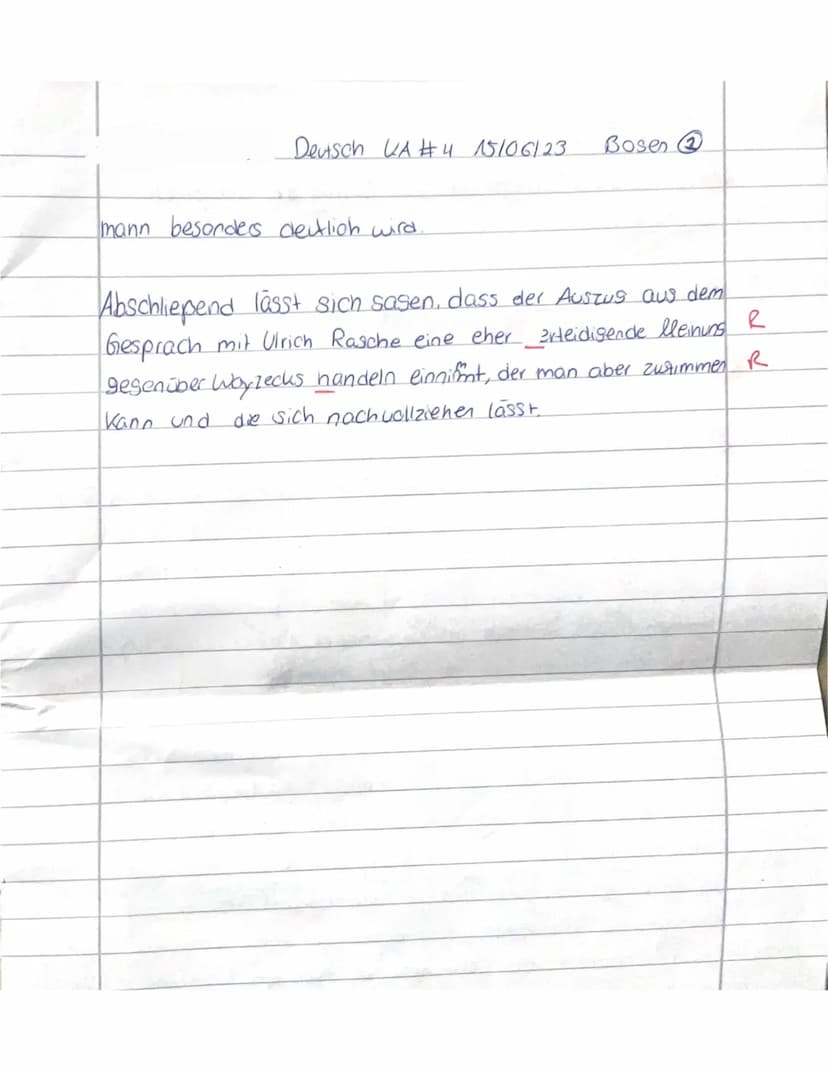 Deutsch KA #4 15/06/23 Bogen ②
mann besonders deutlich wird.
Abschließend lässt sich sagen, dass der Auszug aus dem
Gespräch mit Ulrich Rasche eine eher verteidigende Meinung R
gegenüber Woyzecks handeln einnimmt, der man aber zustimmen R
kann und die sich nachvollziehen lässt.